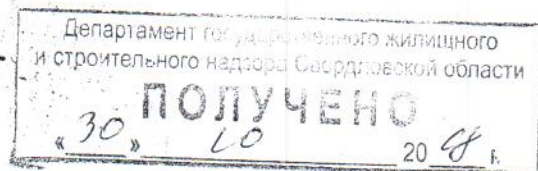 Департамент государственного жилищного
и строительного надзора Свердловской области
ПОЛУЧЕНО
«30» 10 2018 г.